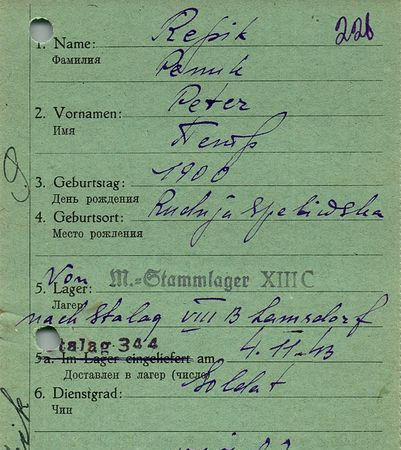 226
1. Name: Repik
Фамилия Репик
2. Vornamen: Peter
Имя Петр
3. Geburtstag: 1900
День рождения
4. Geburtsort: Rudnja
Место рождения
Von
5. Lager: M.-Stammlager XIII C
Лагерь
nach Stalag VIII B Lamsdorf
Stalag 344
5a. Im Lager eingeliefert am 4.11.43
Доставлен в лагерь (число)
6. Dienstgrad: Soldat
Чин